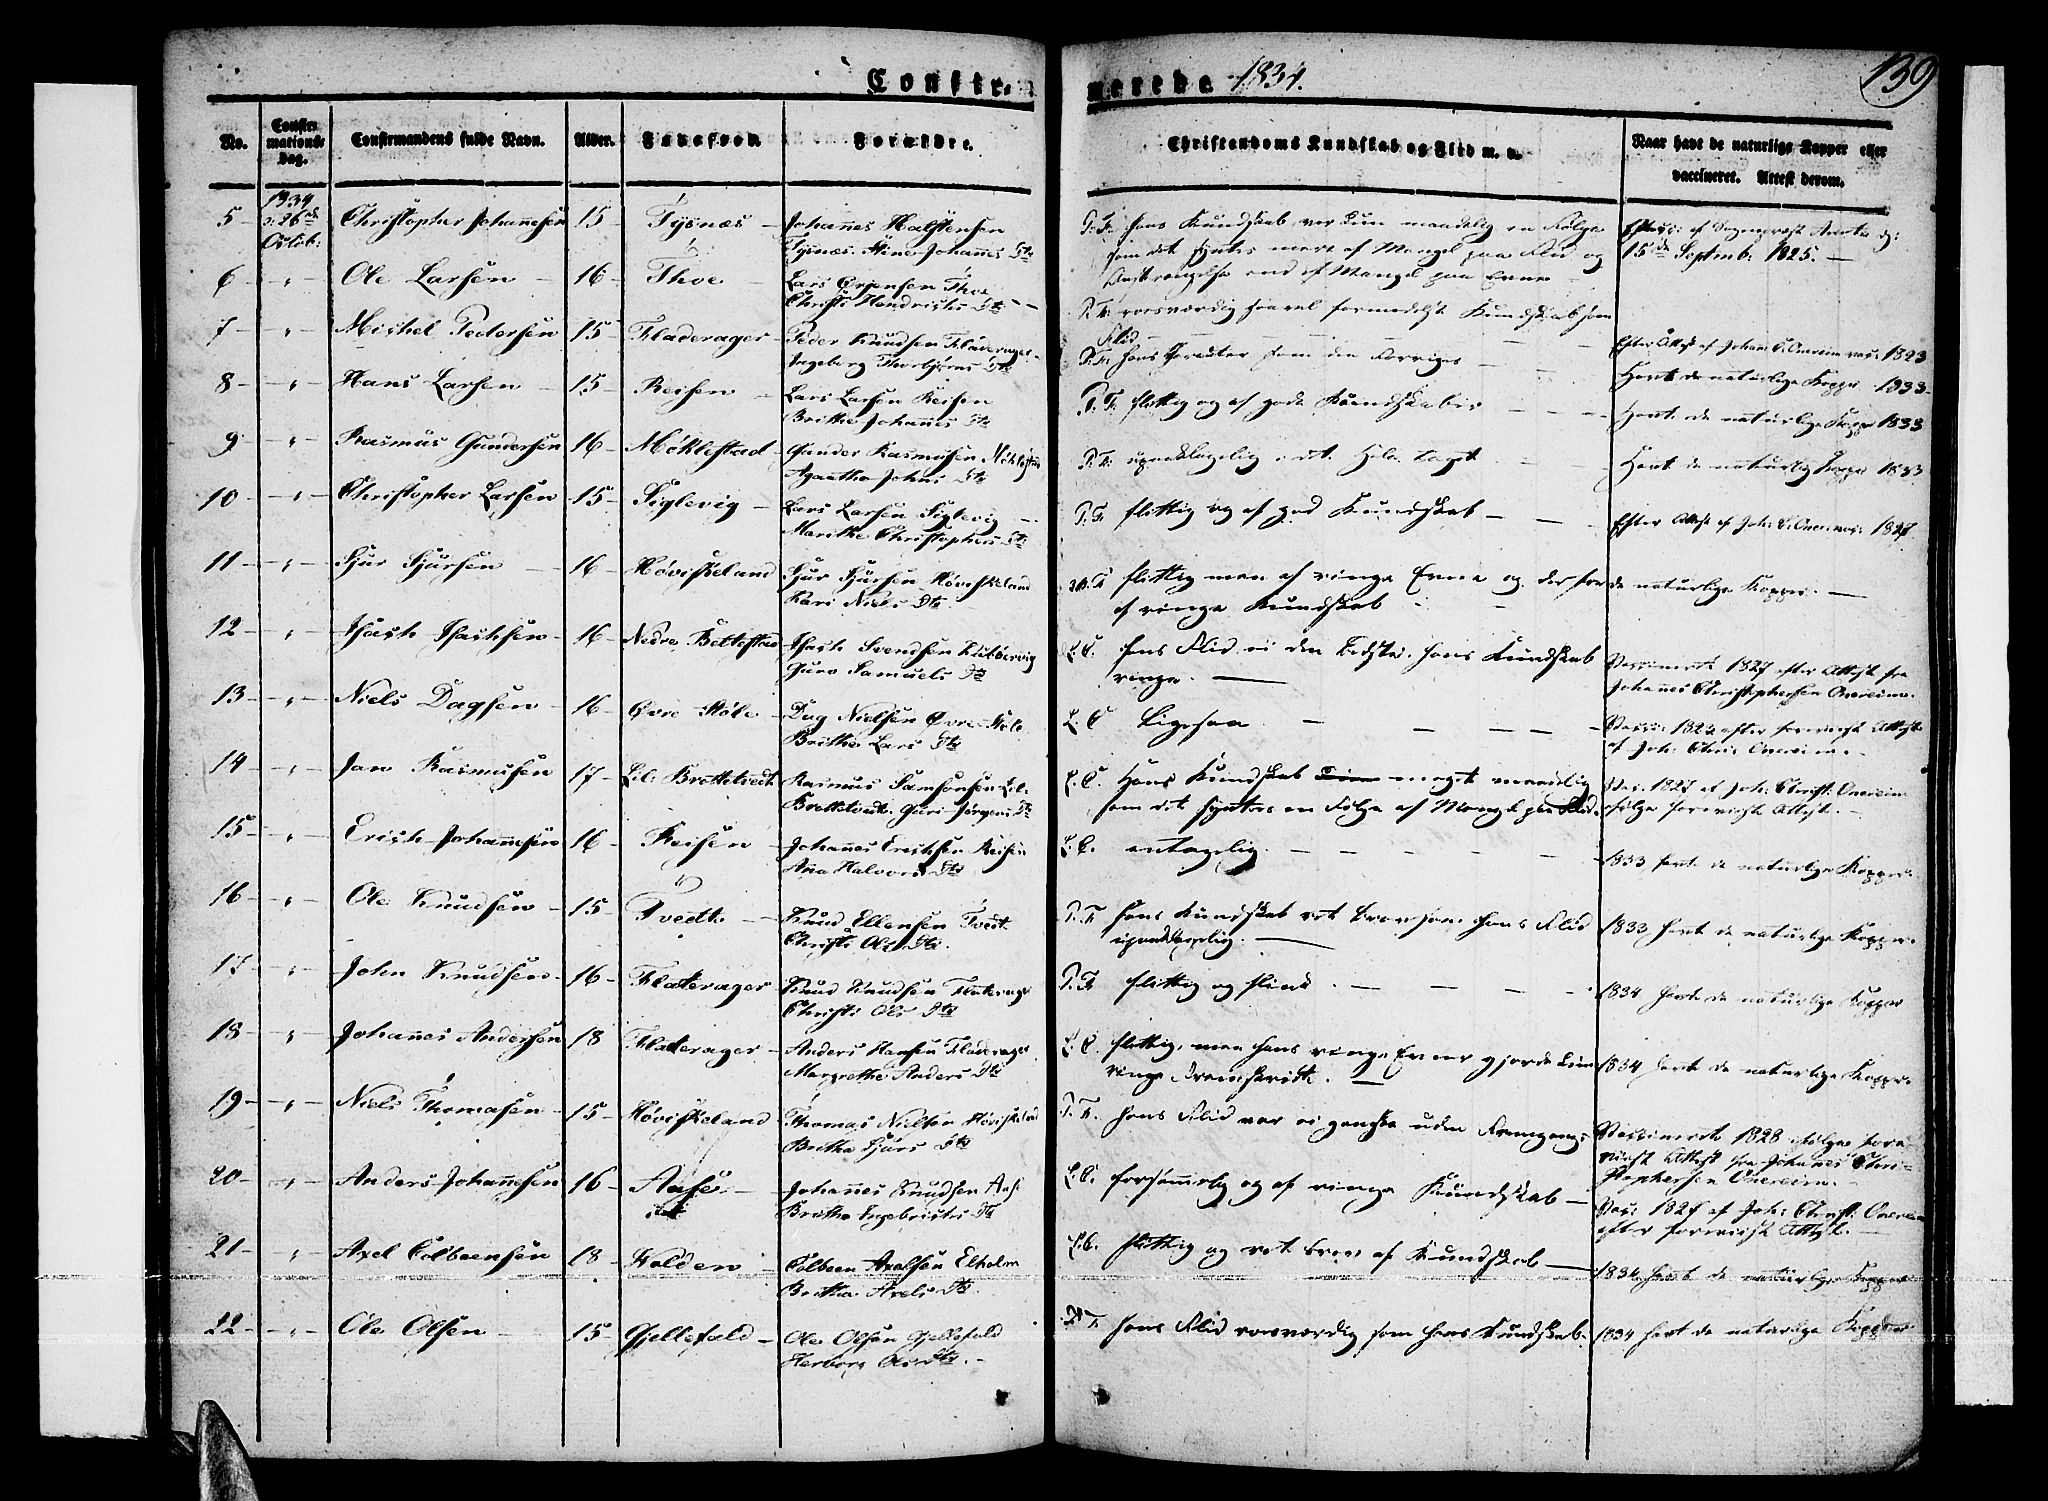 Confirmerede 1834.
139
No.
Confirmations Dag.
Confirmandens fulde Navn.
Alder.
Fødested.
Forældre.
Christendoms Kundskab og Flid m. v.
Naar havt de naturlige Kopper eller
vaccineret. Attest derom.
1834
d: 26de
Octob:
5 Christopher Johannesen 15 Tysnæs Johannes Halstensen
Tysnæs Johannes Dtr
T. F. hans Kundskab var kun maadelig en Følge
som det syntes mere af Mangel paa Flid og
Anstrængelse end af Mangel paa Evne
15de Septemb: 1825.
6 " Ole Larsen 16 Thoe Lars Thoe
Christi Hendrichs Dtr
T. F. roesværdig saavel formedelst Kundskab som
Flid
7 " Michel Pedersen 15 Fladerager Peder Knudsen Fladerager
Ingeborg Thorbjørns Dtr
T. F. hans som den Forriges
Efter Attest af Johan C. Onereim vac: 1823
8 " Hans Larsen 15 Reisen Lars Larsen Reisen
Brithe Johannes Dtr
T. F. flittig og af gode Kundskaber
Havt de naturlige Kopper 1833
9 " Rasmus Gundersen 16 Møklestad Gunder Rasmusen
Agaatha Johns Dtr
T. F. upaaklagelig i det Hele taget
Havt de naturlige Kopper 1833
10 " Christopher Larsen 15 Siglevig Lars Larsen Siglevig
Marithe Christophers Dtr
T. F. flittig og af god Kundskab
Efter Attest af Joh: C. Onere: vac: 1827
Havt de naturlig Kopper 1833
11 " Sjur Sjursen 16 Høviskeland Sjur Sjursen Høviskeland
Kari Niels Dtr
flittig men af ringe Evne og derfor
af ringe Kundskab
de naturlige Kopper.
12 " Isach Isachsen 16 Nedre Bettestad Isach Svendsen
Guro Samuels Dtr
hans Flid ei den bedste, hans Kundskab
ringe.
Vaccineret 1827 efter Attest fra
Johannes Christophersen Onereim.
13 " Niels Dagsen 16 Øvre Høle Dag Nielsen Øvre Høle
Brithe Lars Dtr
Ligesaa
efter forevist Attest
af Joh: Chri: Onereim.
14 " Jan Rasmusen 17 Lil: Brottetvedt Rasmus Samsonsen Lil:
Brottetvedt. Guri Jørgens Dtr
Hans Kundskab meget maadelig
som det syntes en Følge af Mangel paa Flid.
Vac: 1827 af Joh: Christ: Onereim
ifølge forevist Attest.
15 " Erich Johannesen 16 Reisen Johannes Erichsen Reisen
Ana Halvors Dtr
antagelig.
1833 havt de naturlige Kopper.
16 " Ole Knudsen 15 Tvedt Knud Ellensen Tvedt
Christi Ols Dtr
T. F. hans Kundskab ret brav som hans Flid
upaaklagelig.
1833 havt de naturlige Kopper.
17 " John Knudsen 16 Fladerager Knud Knudsen Fladerager
Christi Ols Dtr
T. F. flittig og flink
1834 havt de naturlige Kopper
18 " Johannes Andersen 18 Fladerager Anders Hansen Fladerager
Margrethe Anders Dtr
flittig, men hans ringe Evner gjorde kun
ringe Fremskridt.
1834 havt de naturlige Kopper.
19 " Niels Thomasen 15 Høviskeland Thomas Nielsen Høviskeland
Britha Sjurs Dtr
T. F. hans Flid var ei ganske uden Fremgang
Vaccineret 1828 ifølge fore-
viist Attest fra Johannes Chri-
stophersen Onereim.
20 " Anders Johannesen 16 Aase Johannes Knudsen Aase
Britha Ingebricts Dtr
forsømmelig og af ringe Kundskab
Vac: 1827 af Joh: Christ: Onereim
efter forevist Attest.
21 " Axel Colbeensen 18 Volden Colbeen Axelsen Elholm
Britha Axels Dtr
flittig og ret brav af Kundskab
1834 havt de naturlige Kopper
22 " Ole Olsen 15 Gjellefald Ole Olsen Gjellefald
Herborg Ols Dtr.
T. F. hans Flid roesværdig som hans Kundskab.
1834 havt de naturlige Kopper